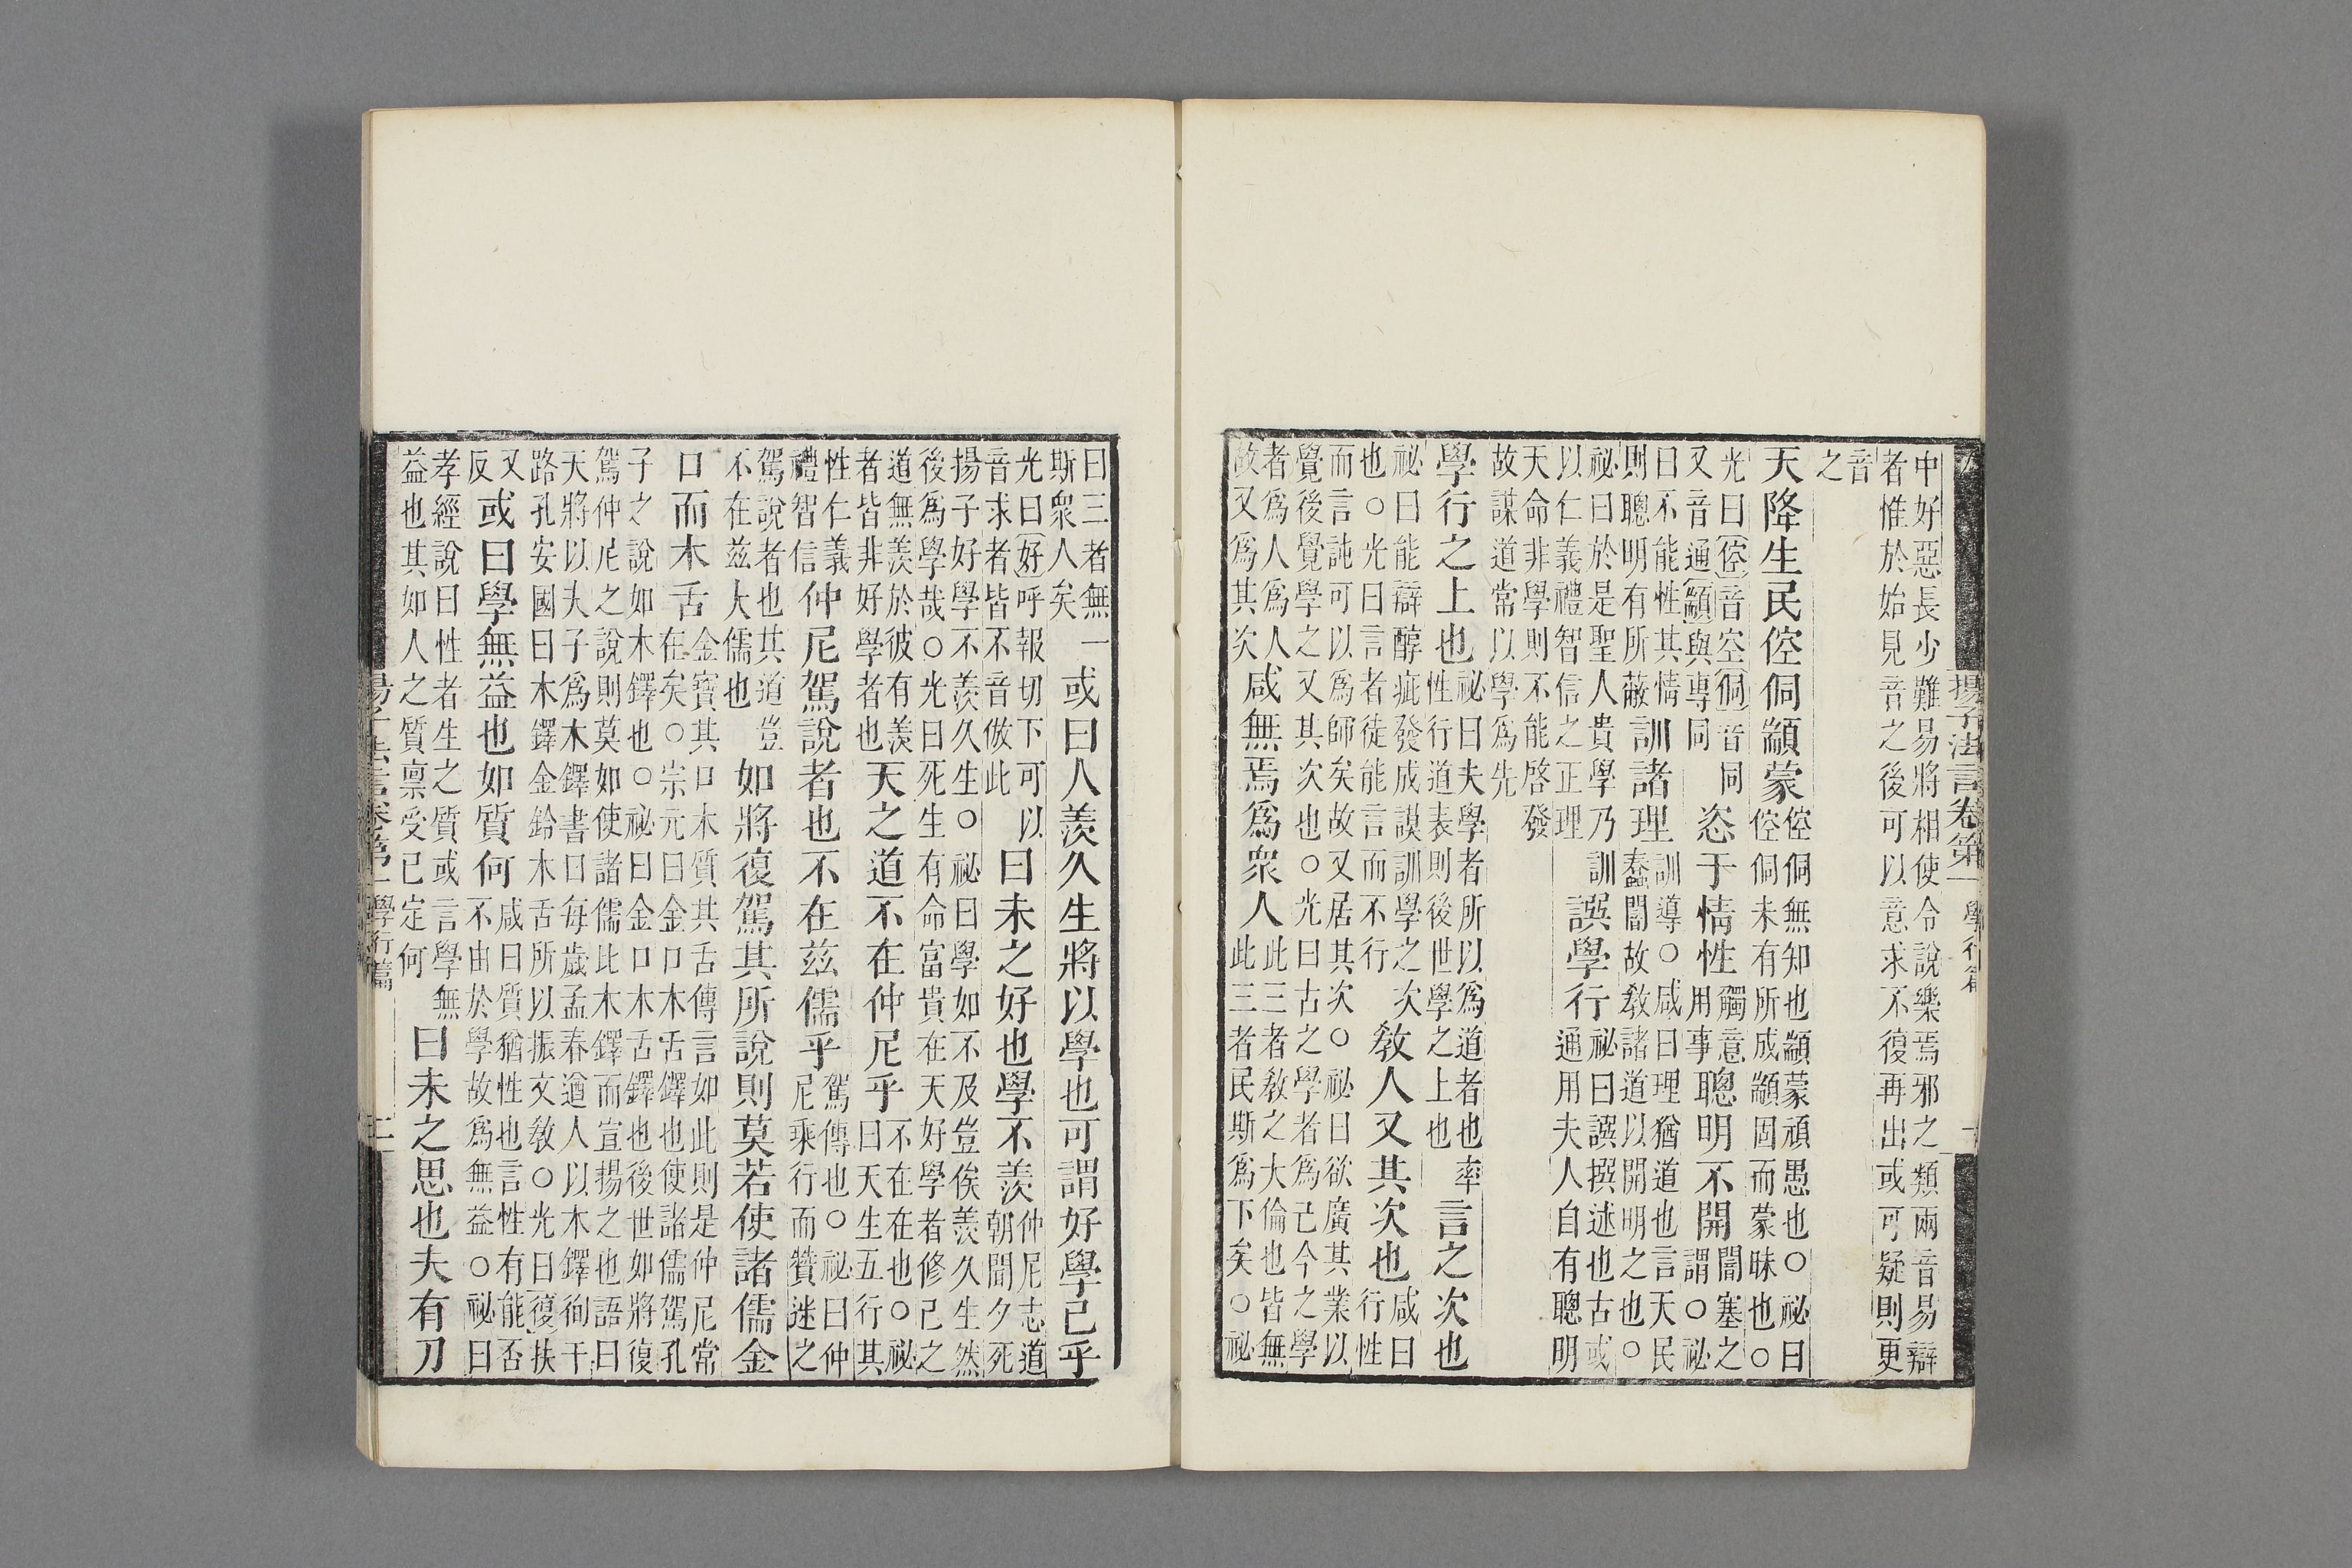 揚子法言卷第一
學行篇
中好惡長少難易將相使令說樂焉邪之類兩音易辯
者惟於始見音之後可以意求不復再出或可疑則更
音
之
天降生民倥侗顓蒙倥侗無知也顓蒙頑愚也○祕曰
倥侗未有所成顓固而蒙昧也○
光曰倥音空侗音同
又音通顓與專同
恣于情性觸意
用事聰明不開闇塞之
謂○祕
曰不能性其情
則聰明有所蔽訓諸理訓導○咸曰理猶道也言天民
蠢闇故敎諸道以開明之也○
祕曰於是聖人貴學乃訓
以仁義禮智信之正理
譔學行祕曰譔撰述也古或
通用夫人自有聰明
天命非學則不能啓發
故謀道常以學爲先
學行之上也祕曰夫學者所以爲道者也率
性行道表則後世學之上也
言之次也咸曰
行性
祕曰能辯醇疵發成謨訓學之次
也○光曰言者徒能言而不行
敎人又其次也
而言訑可以爲師矣故又居其次○祕曰欲廣其業以
覺後覺學之又其次也○光曰古之學者爲己今之學
者爲人爲人
故又爲其次
咸無焉爲衆人此三者敎之大倫也皆無
此三者民斯爲下矣○祕
曰三者無一
斯衆人矣
或曰人羨久生將以學也可謂好學已乎
光曰好呼報切下可以
音求者皆不音倣此
曰未之好也學不羨仲尼志道
朝聞夕死
揚子好學不羨久生○祕曰學如不及豈俟羨久生然
後爲學哉○光曰死生有命富貴在天好學者修己之
道無羨於彼有羨
者皆非好學者也
天之道不在仲尼乎不在在也○祕
曰天生五行其
性仁義
禮智信
仲尼駕說者也不在茲儒乎駕傳也○祕曰仲
尼乘行而贊述之
駕說者也其道豈
不在茲大儒也
如將復駕其所說則莫若使諸儒金
口而木舌金寳其口木質其舌傳言如此則是仲尼常
在矣○宗元曰金口木舌鐸也使諸儒駕孔
子之說如木鐸也○祕曰金口木舌鐸也後世如將復
駕仲尼之說則莫如使諸儒比木鐸而宣揚之也語曰
天將以夫子爲木鐸書曰每歲孟春遒人以木鐸徇于
路孔安國曰木鐸金鈴木舌所以振文敎○光曰復扶
又
反
或曰學無益也如質何咸曰質猶性也言性有能否
不由於學故爲無益○祕曰
孝經說曰性者生之質或言學無
益也其如人之質稟受已定何
曰未之思也夫有刀
學行篇
二